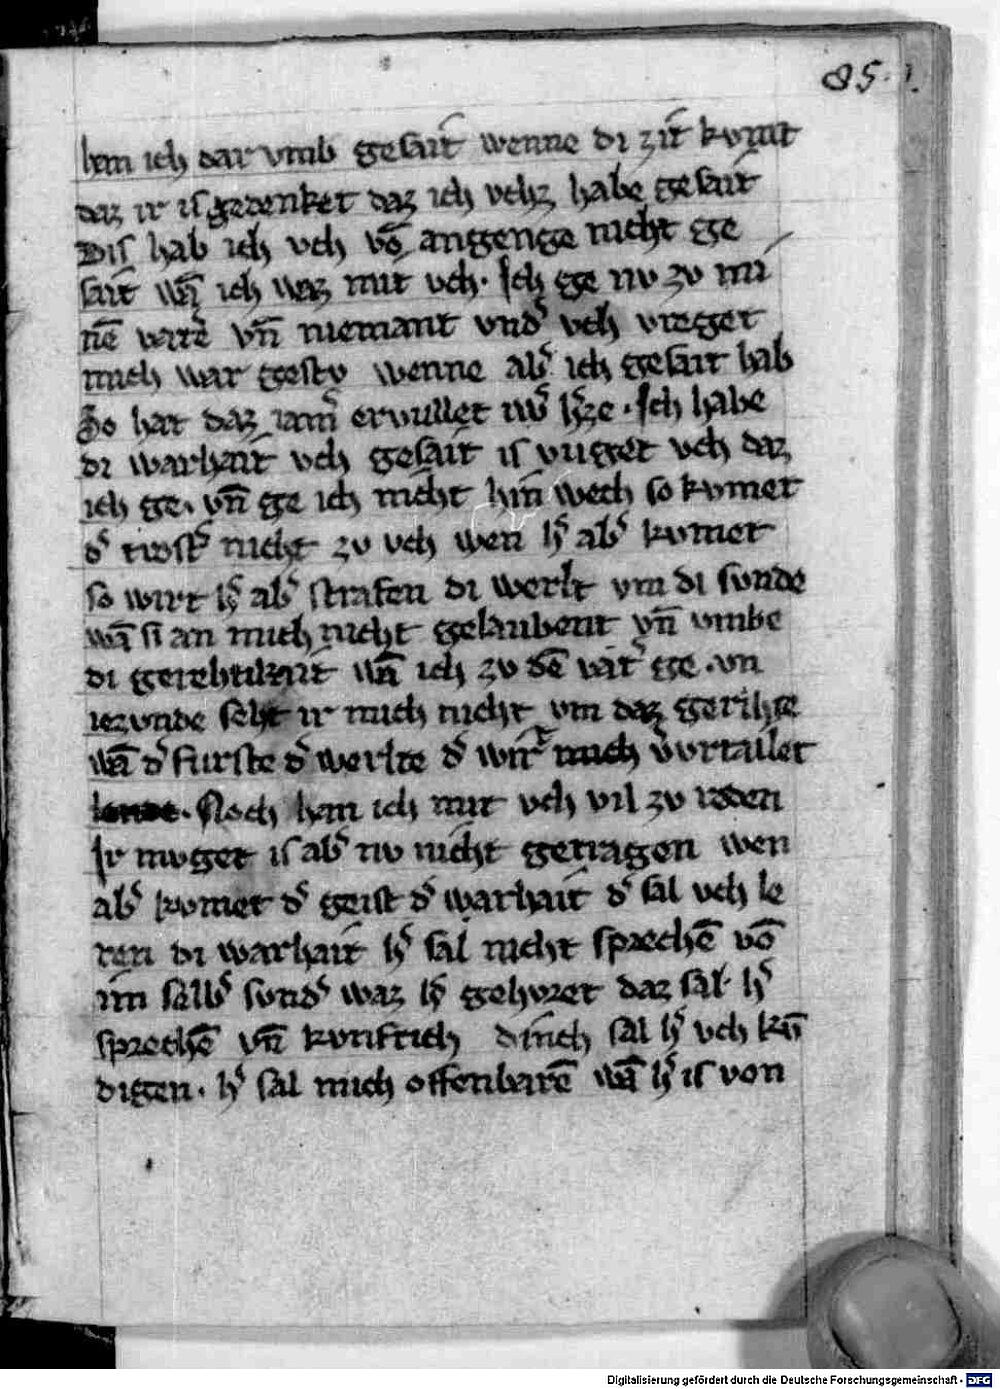 85.
han ich dar vmb gesait wenne di zit kvmt
daz ir is gedenket daz ich vchz habe gesait
Dis hab ich vch võ angenge nicht ge
sait wã ich waz mit vch. Ich ge nv zv mi
nẽ vatẽ vñ niemant vnd̾ vch vreget
mich war gestv wenne ab̾ ich gesait hab
So hat daz iam̾ ervullet iw̾ h̾ze. Ich habe
di warhait vch gesait is vuget vch daz
ich ge. vñ ge ich nicht hin wech so kvmet
d̾ trost̾ nicht zv vch wen h̾ ab̾ kvmet
so wirt h̾ ab̾ strafen di werlt vm di svnde
wã si an mich nicht gelaubent vñ vmbe
di gerehtikait wã ich zv dẽ vat̾ ge. vn
iezvnde seht ir mich nicht vm daz gerihte
wã d̾ furste d̾ werlte d̾ wirt v̾vrtailet
Noch han ich mit vch vil zv reden
Ir mvget is ab̾ nv nicht getragen wen
ab̾ kvmet d̾ geist d̾ warhait d̾ sal vch le
ren di warhait h̾ sal nicht sprechẽ võ
im salb̾ svnd̾ waz h̾ gehvret daz sal h̾
sprechẽ vñ kvnftich dinch sal h̾ vch kũ
digen. h̾ sal mich offenbarẽ wã h̾ is von
Digitalisierung gefördert durch die Deutsche Forschungsgemeinschaft - DFG